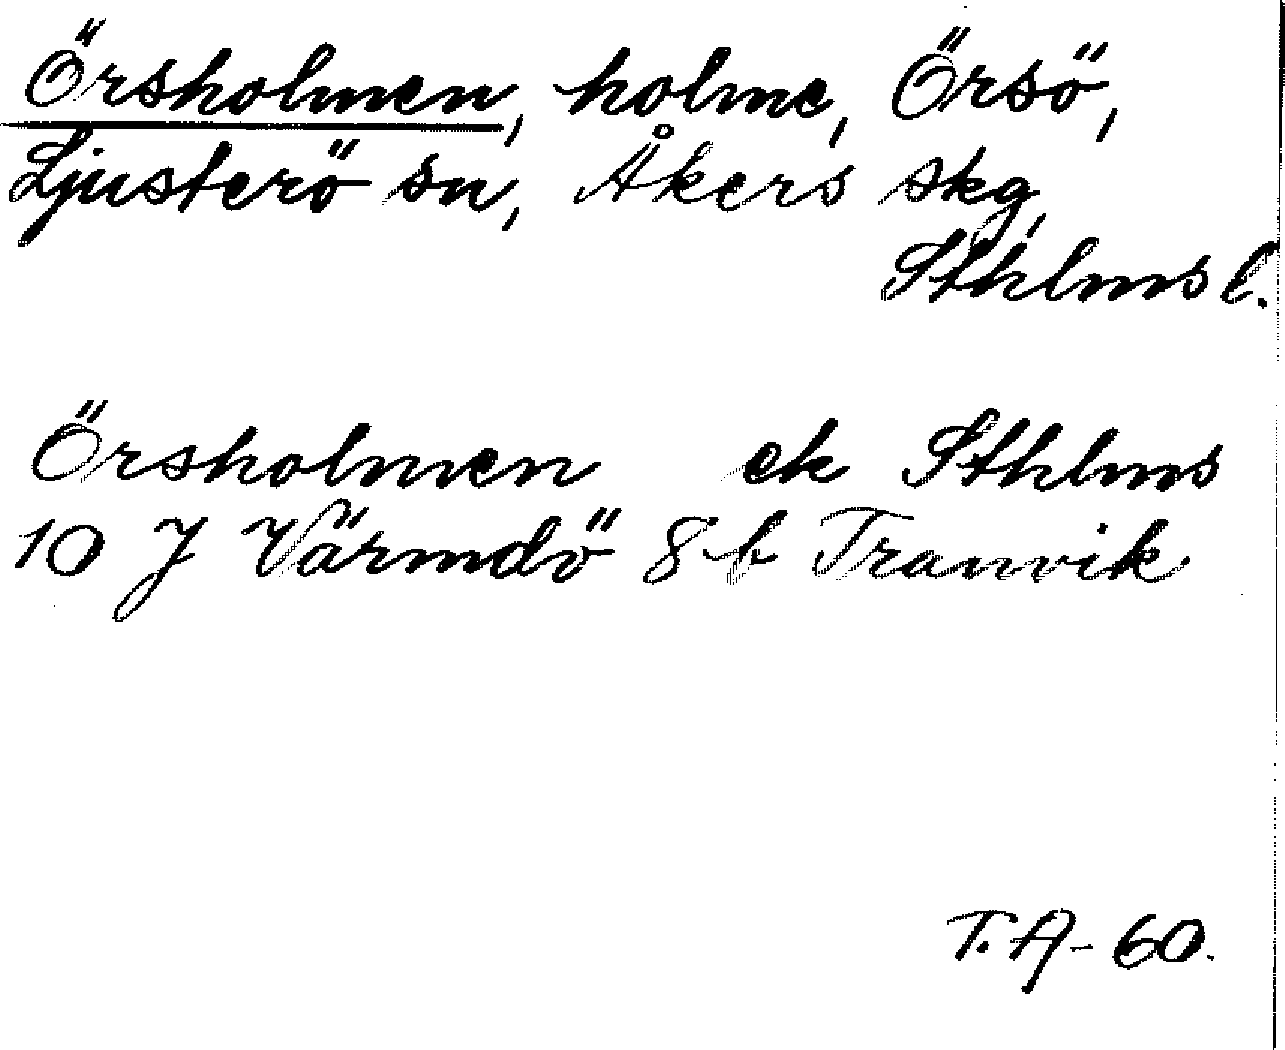 Örsholmen, holme, Örsö,
Ljusterö sn, Åkers skg,
Sthlms l.
Örsholmen ek Sthlms
10 J Värmdö 8 b Tranvik
T. A-60.